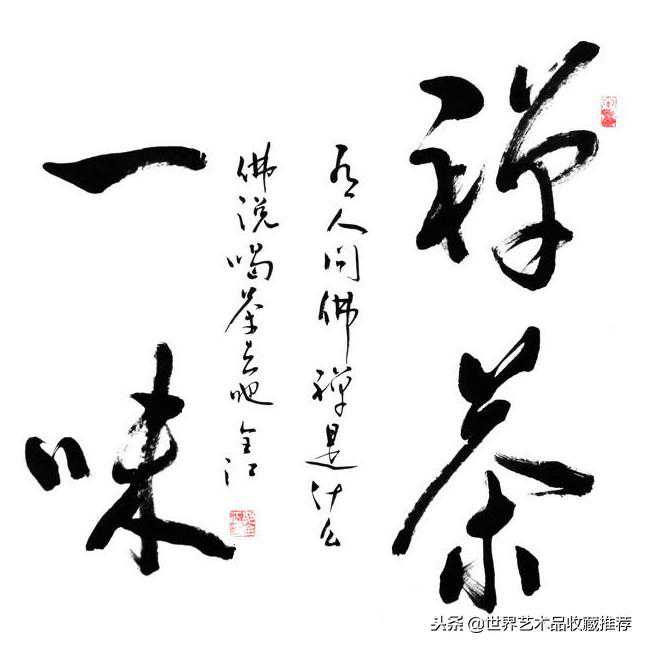 禅茶
有人问佛禅是什么
佛说喝茶去吧 金江
一味
头条 @世界艺术品收藏推荐